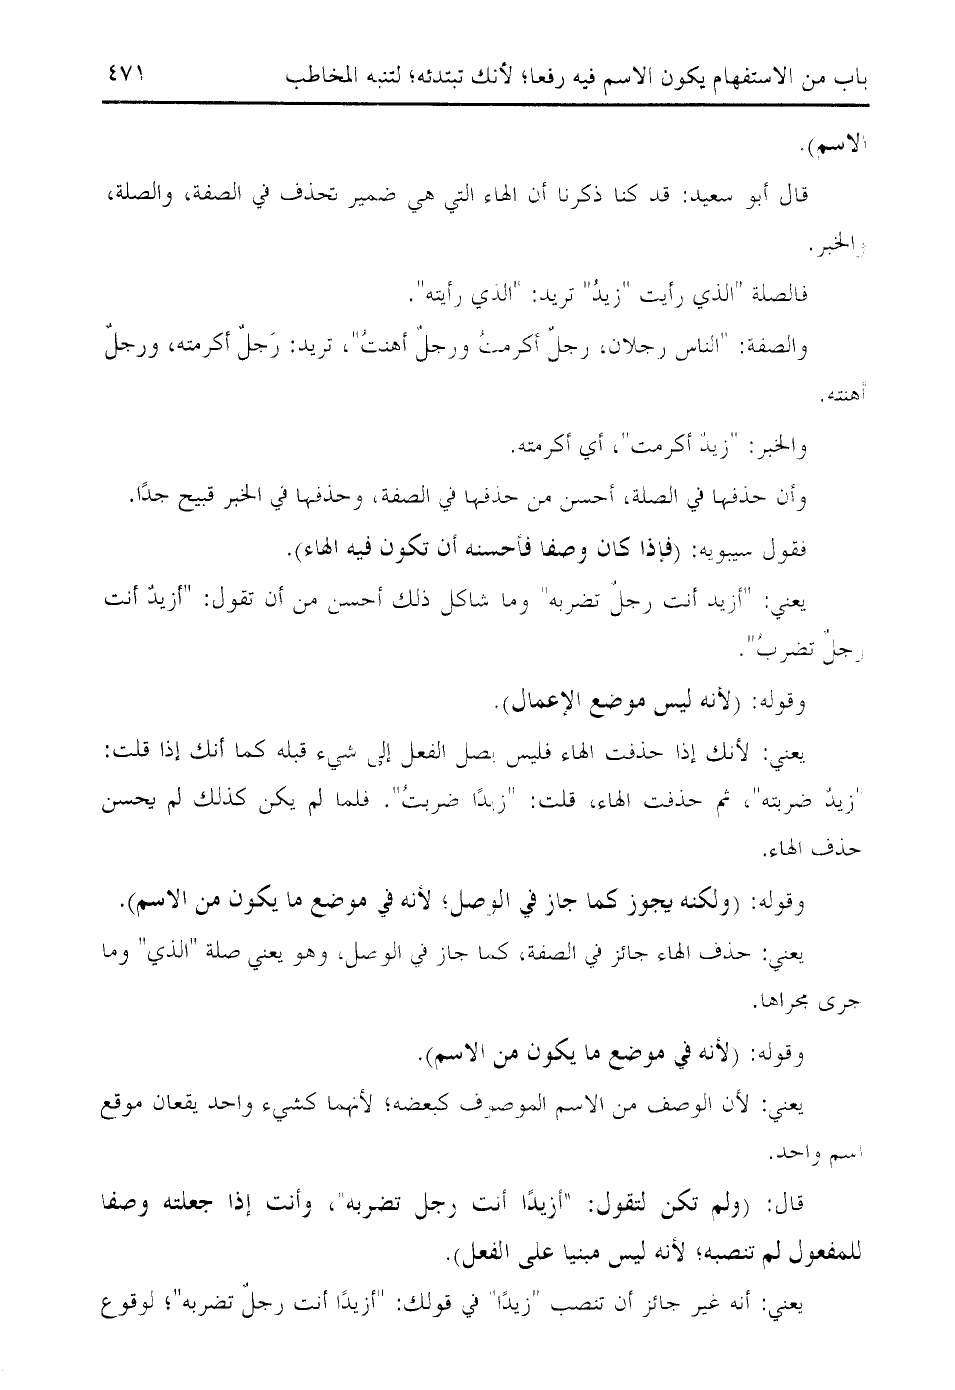 باب من الاستفهام يكون الاسم فيه رفعا؛ لأنك تبتدئه؛ لتنبه المخاطب ٤٧١
الاسم).
قال أبو سعيد: قد كنا ذكرنا أن الهاء التي هي ضمير تحذف في الصفة، والصلة،
والخبر.
فالصلة "الذي رأيت "زيدُ" تريد: "الذي رأيته".
والصفة: "الناس رجلان، رجلٌ أكرمتُ ورجلٌ أهنتُ"، تريد: رَجلٌ أكرمته، ورجلٌ
أهنته.
والخبر: "زيدٌ أكرمت"، أي أكرمته.
وأن حذفها في الصلة، أحسن من حذفها في الصفة، وحذفها في الخبر قبيح جدًا.
فقول سيبويه: (فإذا كان وصفا فأحسنه أن تكون فيه الهاء).
يعني: "أزيد أنت رجلٌ تضربه" وما شاكل ذلك أحسن من أن تقول: "أزيدٌ أنت
رجلٌ تضربُ".
وقوله: (لأنه ليس موضع الإعمال).
يعني: لأنك إذا حذفت الهاء فليس يصل الفعل إلى شيء قبله كما أنك إذا قلت:
"زيدٌ ضربته"، ثم حذفت الهاء، قلت: "زيدًا ضربتُ". فلما لم يكن كذلك لم يحسن
حذف الهاء.
وقوله: (ولكنه يجوز كما جاز في الوصل؛ لأنه في موضع ما يكون من الاسم).
يعني: حذف الهاء جائز في الصفة، كما جاز في الوصل، وهو يعني صلة "الذي" وما
جرى مجراها.
وقوله: (لأنه في موضع ما يكون من الاسم).
يعني: لأن الوصف من الاسم الموصوف كبعضه؛ لأنهما كشيء واحد يقعان موقع
اسم واحد.
قال: (ولم تكن لتقول: "أزيدًا أنت رجل تضربه"، وأنت إذا جعلته وصفا
للمفعول لم تنصبه؛ لأنه ليس مبنيا على الفعل).
يعني: أنه غير جائز أن تنصب "زيدًا" في قولك: "أزيدًا أنت رجلٌ تضربه"؛ لوقوع